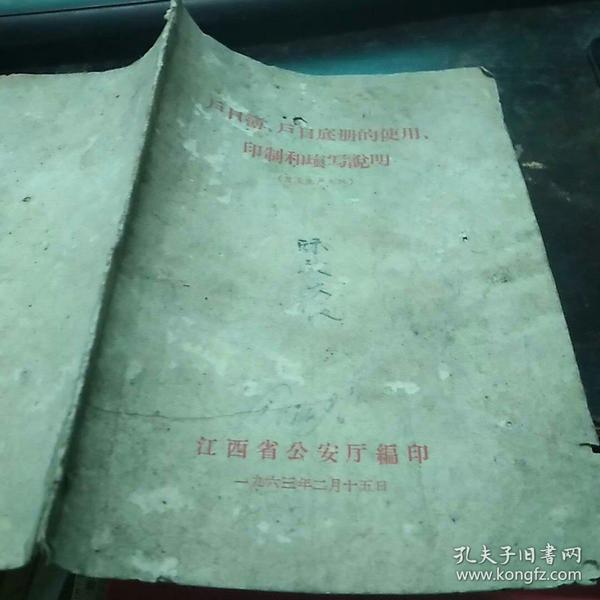 户口簿、户口底册的使用、
印制和填写說明
江西省公安厅編印
一九六三年二月十五日
孔夫子旧书网
www.kongfz.com